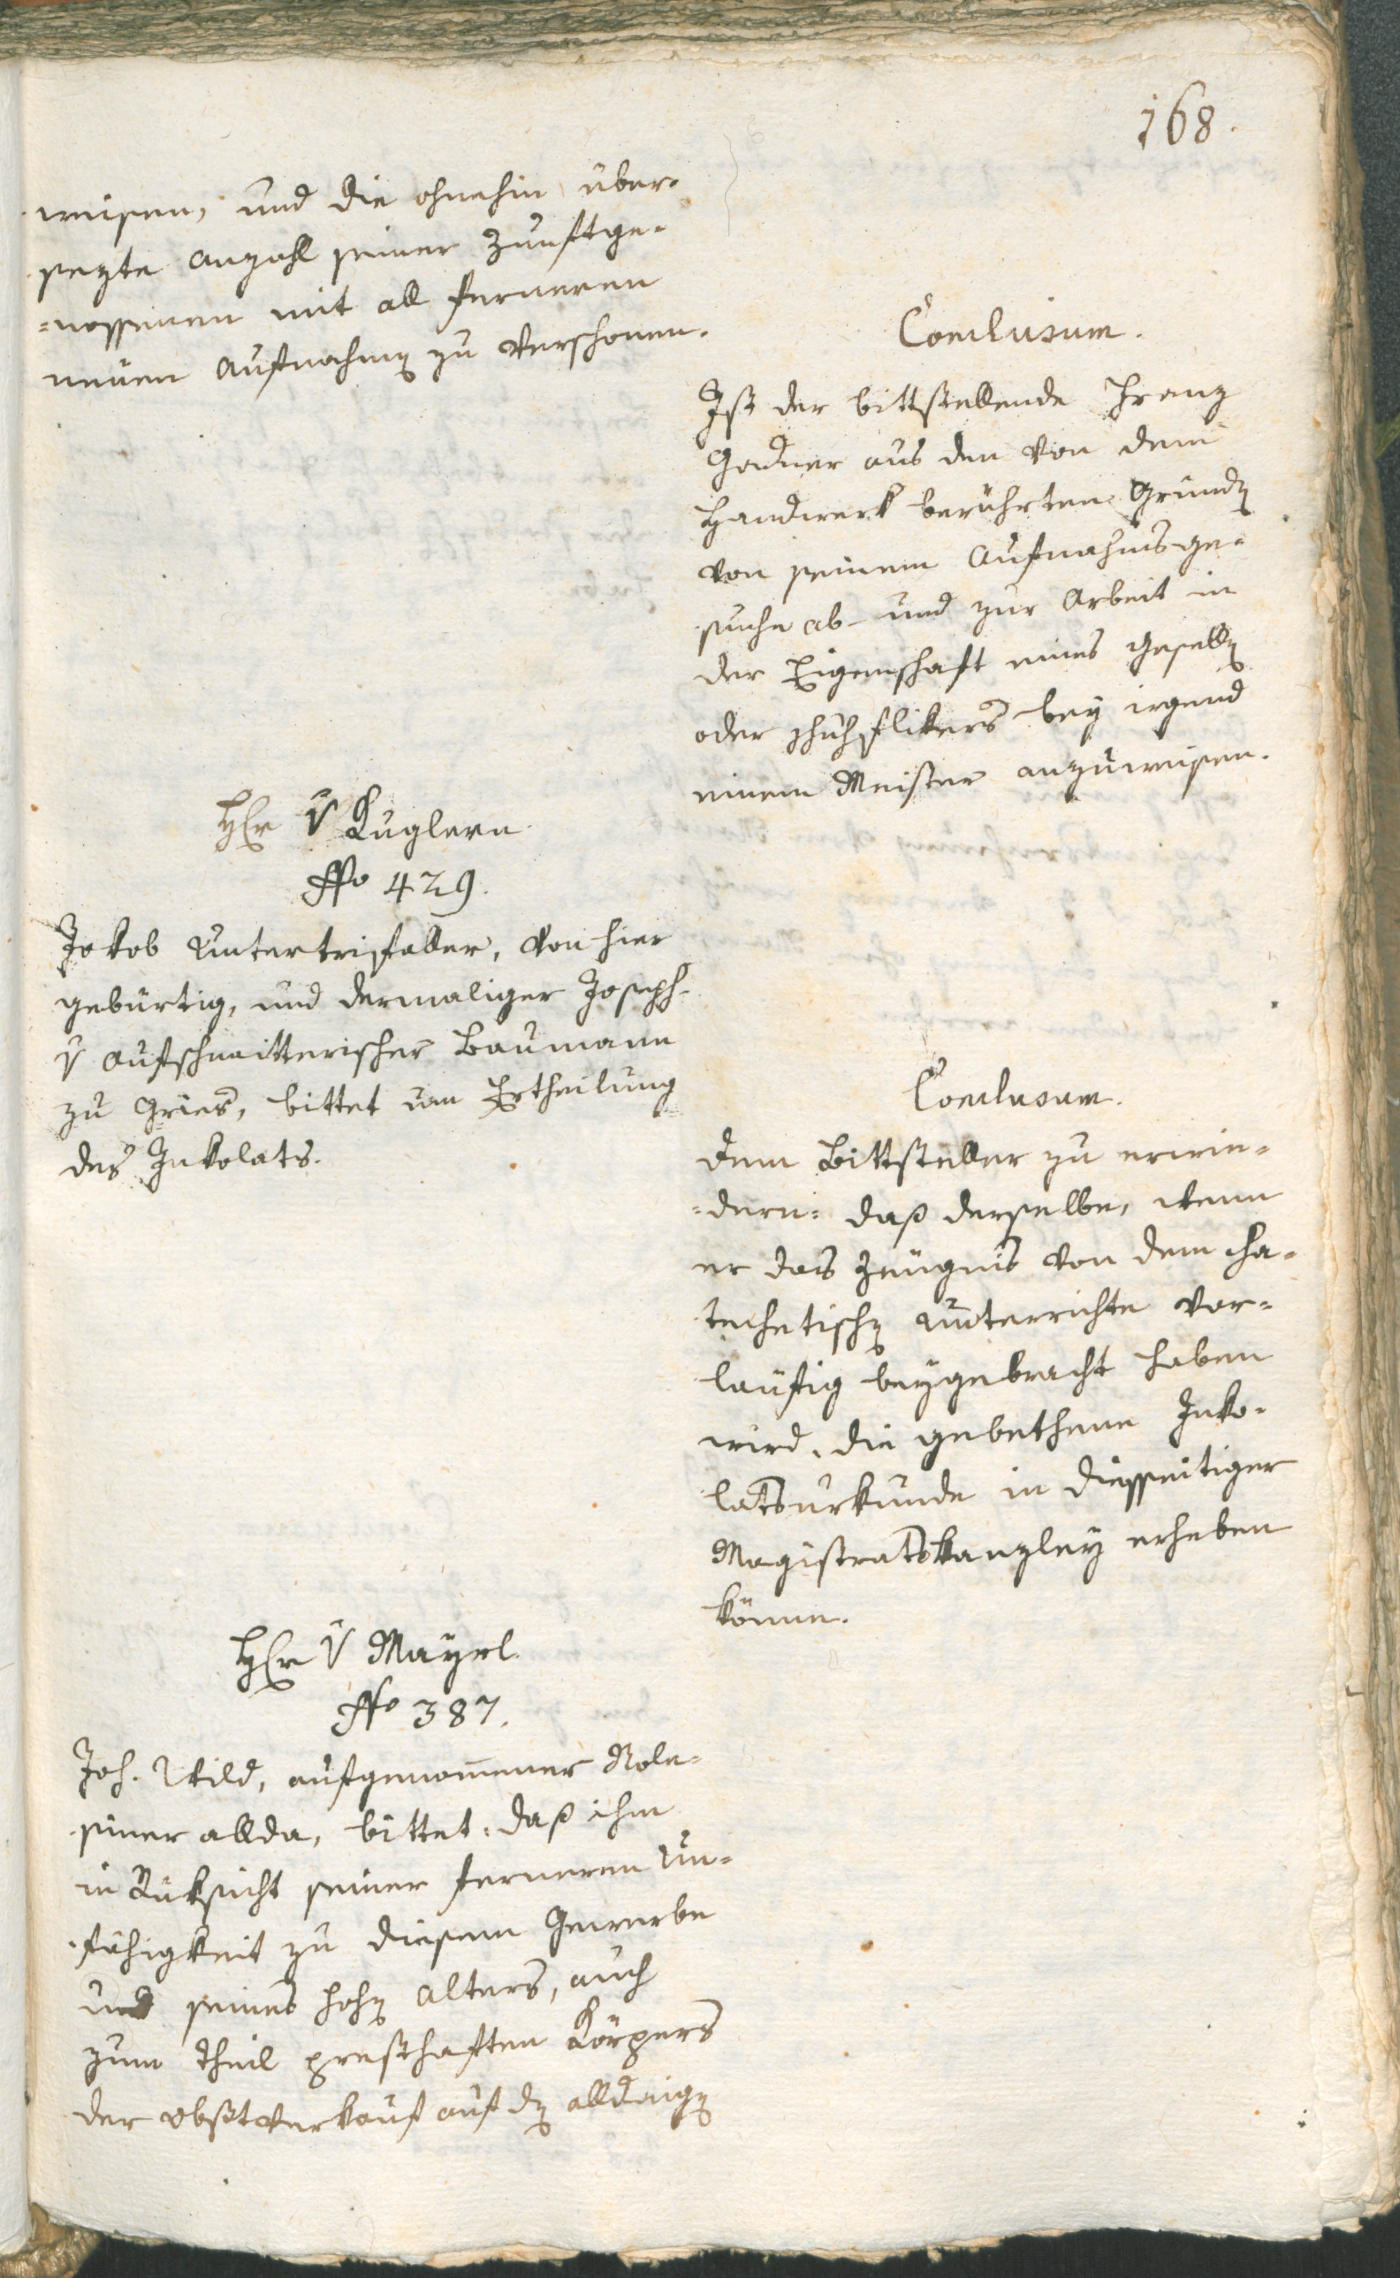 168.
weisen, und die ohnehin über-
sezte anzahl seiner Zunftge-
=nossenen mit all ferneren
neuen Aufnahmen zu verschonen.
Conclusum.
Ist der bittstellende Franz
Gadner aus den von dem
Handwerk berührten Gründen
von seinem Aufnahmsge-
suche ab- und zur Arbeit in
der Eigenschaft eines Gesellen
oder schuhflikers bey irgend
einem Meister anzuweisen.
Herr v Kuglern
No 429.
Jakob Untertrifaller, von hier
gebürtig, und dermaliger Joseph-
v Aufschnaitterischer Baumann
zu Gries, bittet um Ertheilung
des Inkolats.
Conclusum.
dem Bittsteller zu erwie-
=dern: daß derselbe, wenn
er das Zeugnis von dem cha-
techetischen Unterrichte vor-
läufig beygebracht haben
wird, die gebethene Inko-
latsurkunde in diesseitiger
Magistratskanzley erheben
könne.
Herr v Mayrl.
No 387.
Joh. Wild, aufgenommener Role-
siner allda, bittet, daß ihm
in Rüksicht seiner ferneren Un-
fähigkeit zu diesem Gewerbe
und seines hohen Alters, auch
zum theil presthaften Körpers
der obstverkauf auf den alldaigen